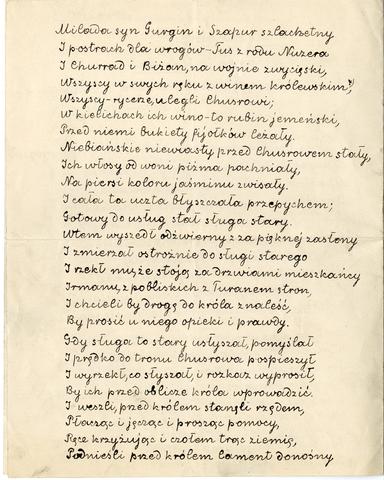 Milada syn Gurgin i Szapur szlachetny
I postrach dla wrogów - Tus z rodu Nuzera
I Churrad i Biżan, na wojnie zwycięski,
Wszyscy w swych ręku z winem królewskim,
Wszyscy - rycerze, ulegli Chusrowi;
W kielichach ich wino - to rubin jemeński,
Przed niemi bukiety fijołków leżały.
Niebiańskie niewiasty przed Chusrowem stały,
Ich włosy od woni piżma pachniały,
Na piersi koloru jaśminu zwisały.
I cała ta uczta błyszczała przepychem;
Gotowy do usług stał sługa stary.
Wtem wyszedł odźwierny z za pięknej zasłony
I zmierzał ostrożnie do sługi starego
I rzekł mu, że stoją za drzwiami mieszkańcy
Irmanu, z pobliskich z Turanem stron,
I chcieli by drogę do króla znaleść,
By prosić u niego opieki i prawdy.
Gdy sługa to stary usłyszał, pomyślał
I prędko do tronu Chusrowa pospieszył
I wyrzekł, co słyszał, i rozkaz wyprosił,
By ich przed oblicze króla wprowadzić.
I weszli, przed królem stanęli rzędem,
Płacząc i jęcząc i prosząc pomocy,
Ręce krzyżując i czołem trąc ziemię,
Podnieśli przed królem lament donośny